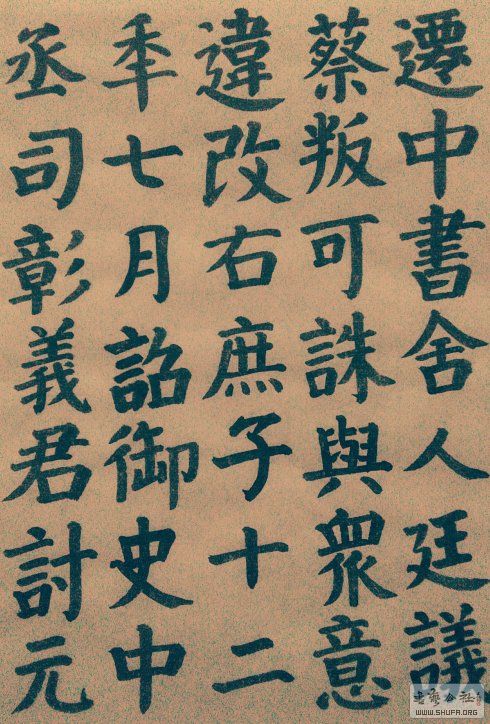 遷中書舍人廷議
蔡叛可誅與衆意
違改右庶子十二
秊七月詔御史中
丞司彰義君討元
WWW.SHUFA.ORG